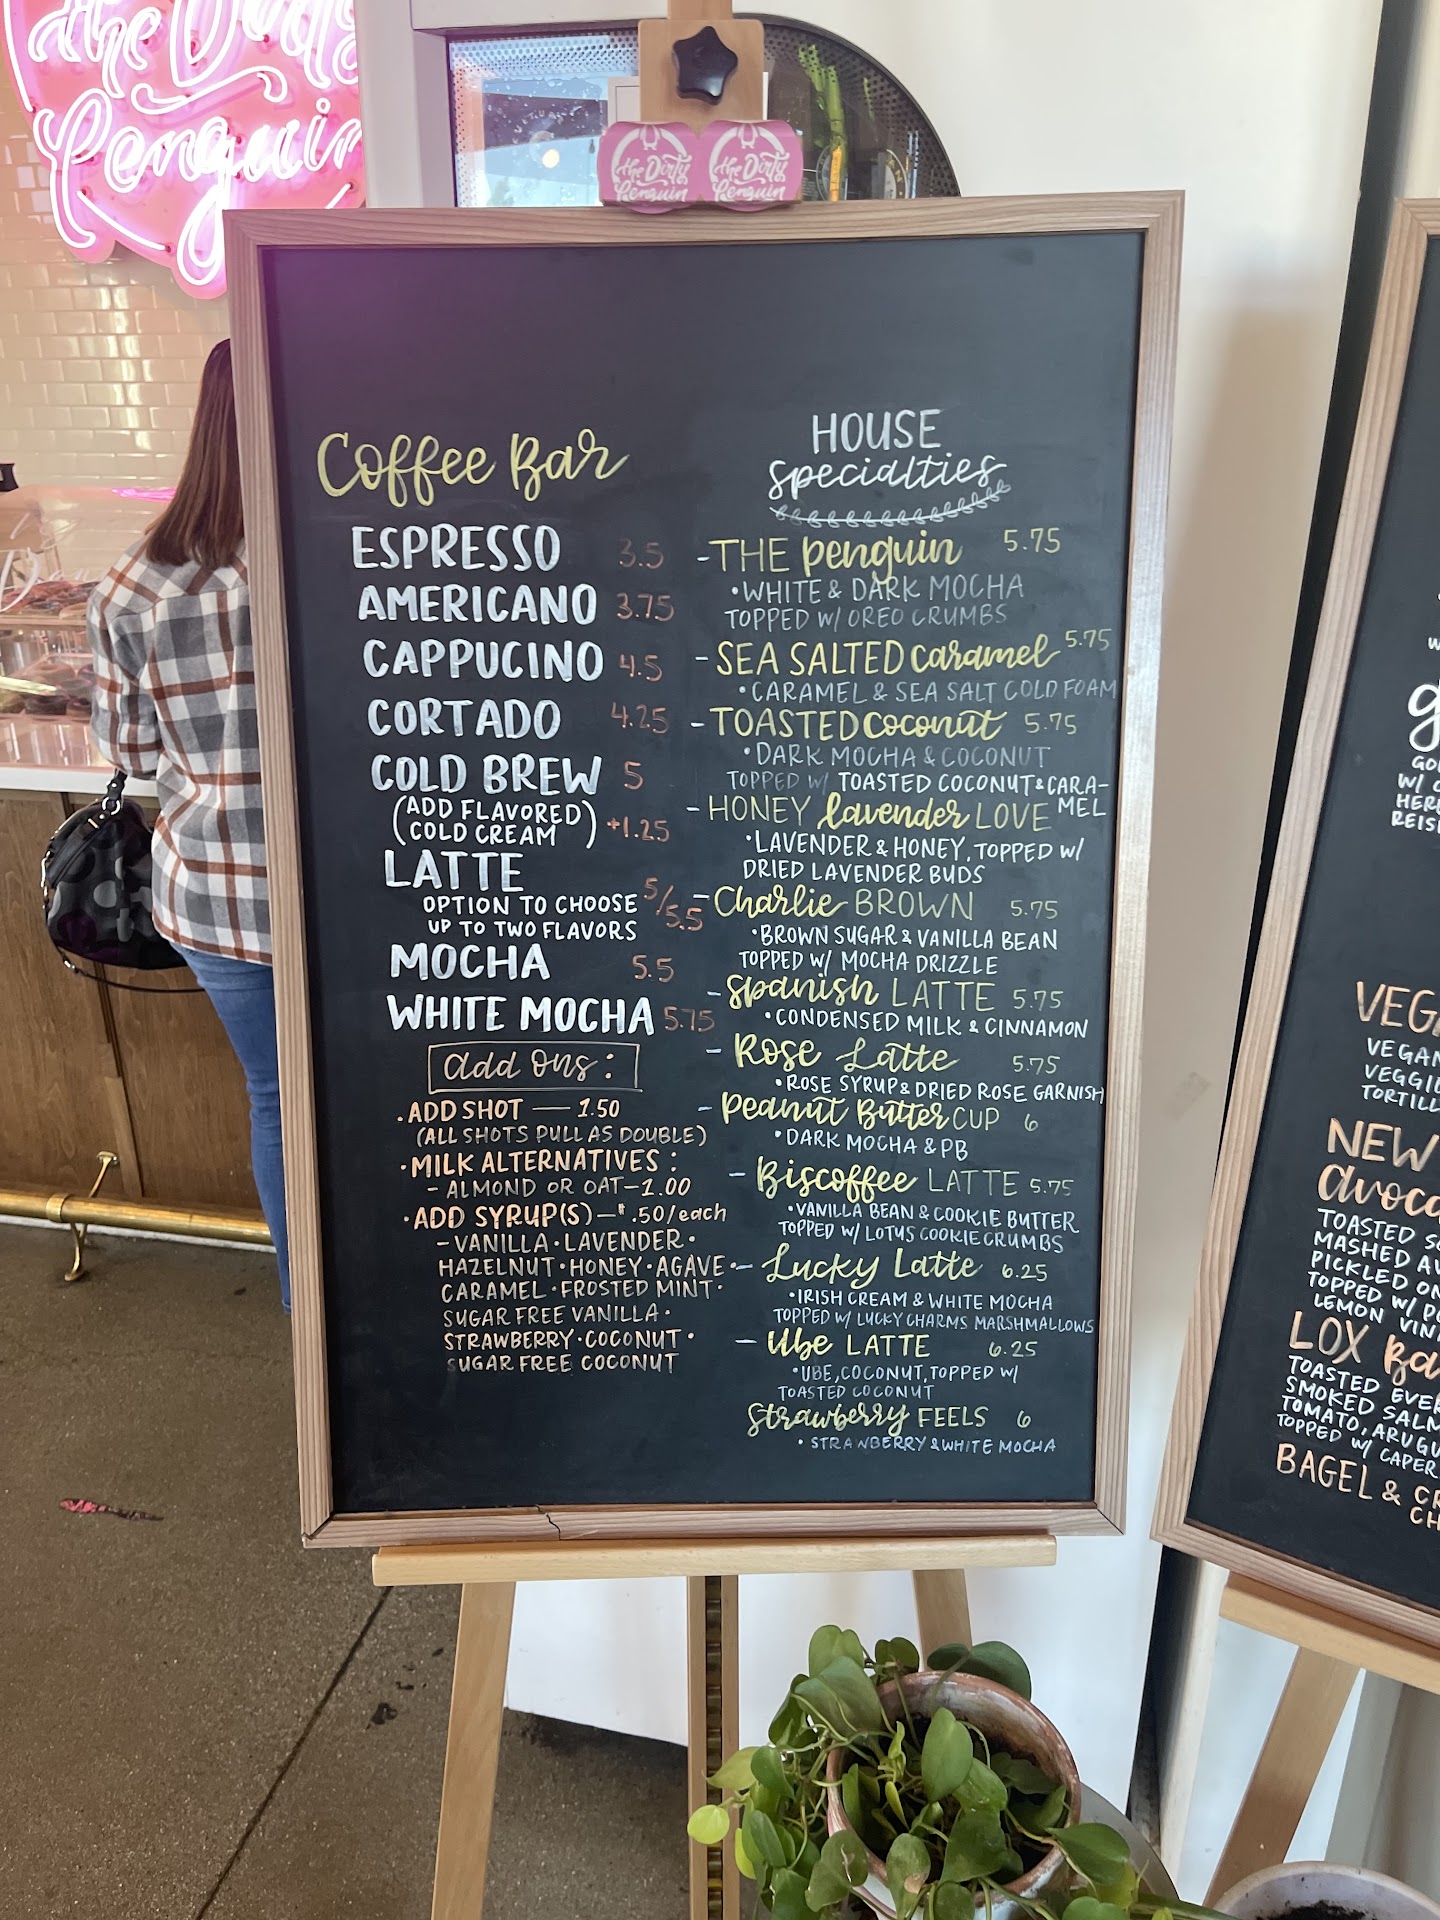 the Dirty
Penguin
the Dirty
Penguin
the Dirty
Penguin
Coffee Bar
ESPRESSO 3.5
AMERICANO 3.75
CAPPUCINO 4.5
CORTADO 4.25
COLD BREW 5
(ADD FLAVORED
COLD CREAM) +1.25
LATTE
OPTION TO CHOOSE 5/5.5
UP TO TWO FLAVORS
MOCHA 5.5
WHITE MOCHA 5.75
add ons:
• ADD SHOT — 1.50
(ALL SHOTS PULL AS DOUBLE)
• MILK ALTERNATIVES:
- ALMOND OR OAT - 1.00
• ADD SYRUP(S) - $.50/each
- VANILLA • LAVENDER •
HAZELNUT • HONEY • AGAVE •
CARAMEL • FROSTED MINT •
SUGAR FREE VANILLA •
STRAWBERRY • COCONUT •
SUGAR FREE COCONUT
HOUSE
specialties
- THE penguin 5.75
• WHITE & DARK MOCHA
TOPPED W/ OREO CRUMBS
- SEA SALTED caramel 5.75
• CARAMEL & SEA SALT COLD FOAM
- TOASTED coconut 5.75
• DARK MOCHA & COCONUT
TOPPED W/ TOASTED COCONUT & CARA-
MEL
- HONEY lavender LOVE
• LAVENDER & HONEY, TOPPED W/
DRIED LAVENDER BUDS
- Charlie BROWN 5.75
• BROWN SUGAR & VANILLA BEAN
TOPPED W/ MOCHA DRIZZLE
- Spanish LATTE 5.75
• CONDENSED MILK & CINNAMON
- Rose Latte 5.75
• ROSE SYRUP & DRIED ROSE GARNISH
- Peanut Butter CUP 6
• DARK MOCHA & PB
- Biscoffee LATTE 5.75
• VANILLA BEAN & COOKIE BUTTER
TOPPED W/ LOTUS COOKIE CRUMBS
- Lucky Latte 6.25
• IRISH CREAM & WHITE MOCHA
TOPPED W/ LUCKY CHARMS MARSHMALLOWS
- Ube LATTE 6.25
• UBE, COCONUT, TOPPED W/
TOASTED COCONUT
Strawberry FEELS 6
• STRAWBERRY & WHITE MOCHA
W/
VEGAN
VEGGIE
TORTILL
NEW
avoca
TOASTED
MASHED AV
PICKLED ON
TOPPED W/
LEMON VIN
LOX Ba
TOASTED EVER
SMOKED SALM
TOMATO, ARUGU
TOPPED W/ CAPER
BAGEL & CR
CH